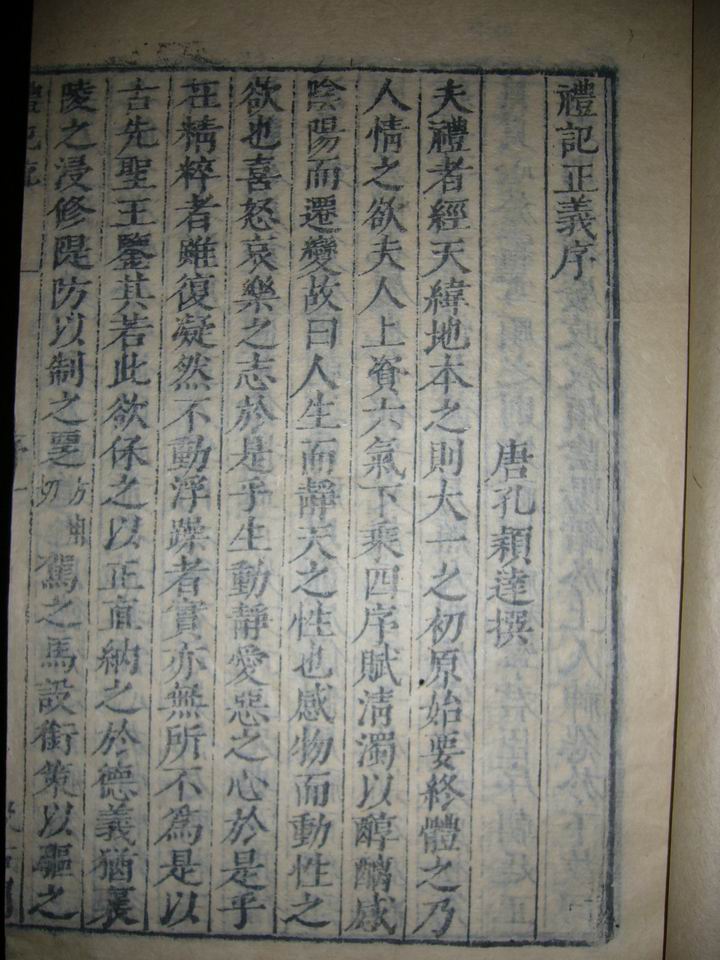 禮記正義序
唐孔穎達撰
夫禮者經天緯地本之則大一之初原始要終體之乃
人情之欲夫人上資六氣下乘四序賦清濁以醇醨感
陰陽而遷變故曰人生而靜天之性也感物而動性之
欲也喜怒哀樂之志於是乎生動靜愛惡之心於是乎
在精粹者雖復凝然不動浮躁者實亦無所不爲是以
古先聖王鑒其若此欲保之以正直納之於德義猶襄
陵之浸修隄防以制之覂方勇切駕之馬設銜策以驅之